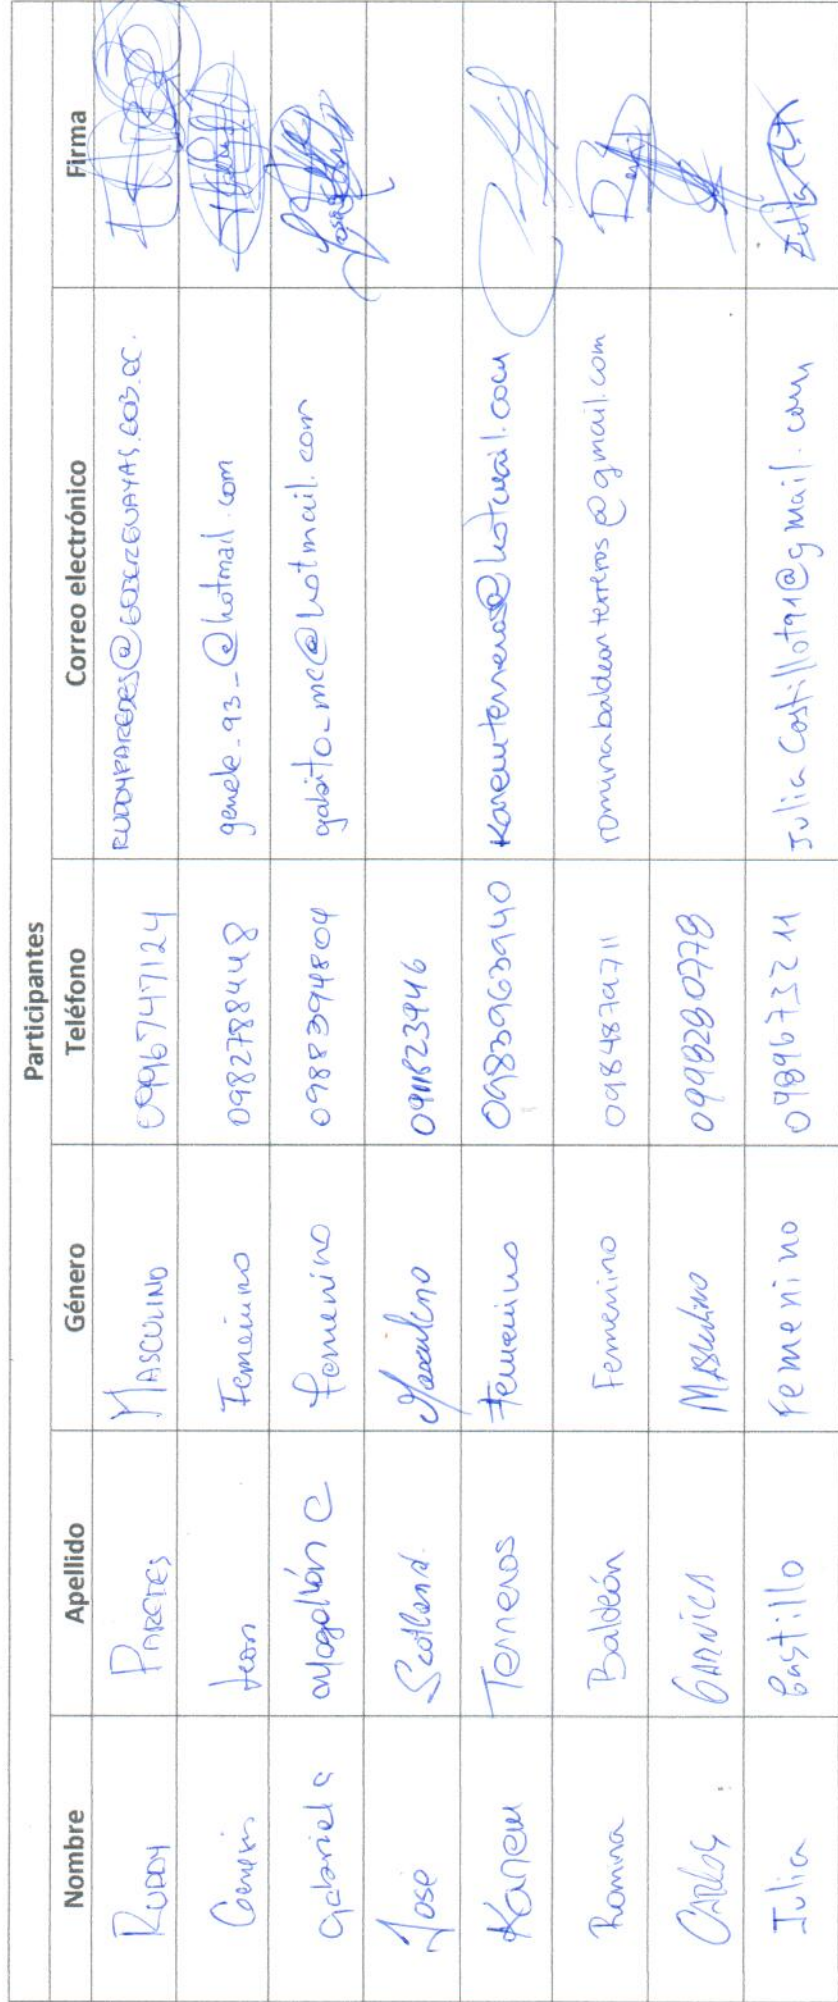 Participantes
Nombre Apellido Género Teléfono Correo electrónico Firma
RUDDY PAREDES MASCULINO 0996747124 RUDDYPAREDES@
Genesis Leon Femenino 0982788448 genele_93_@hotmail.com
Gabriela Mogollón C Femenino 0988394804 gabito_mc@hotmail.com
Jose Scotland. Masculino
Karem Terreros Femenino 0983963940 karemterreros@hotmail.com
Romina Baldeón Femenino 0984879711 rominabaldeonterreros@gmail.com
CARLOS GARNICA Masculino 0999280778
Julia Castillo Femenino 0989673211 JuliaCastillot91@gmail.com